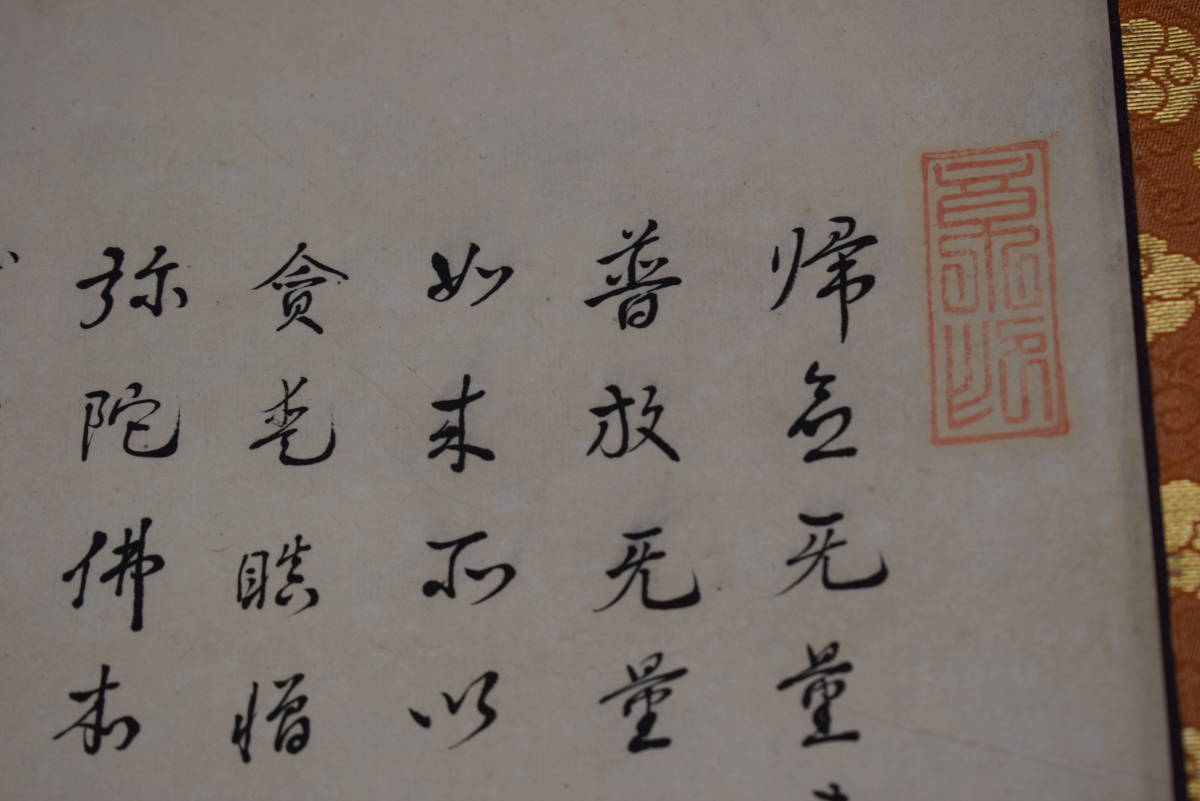 帰命无量
普放无量
如来所以
貪愛瞋憎
弥陀佛本